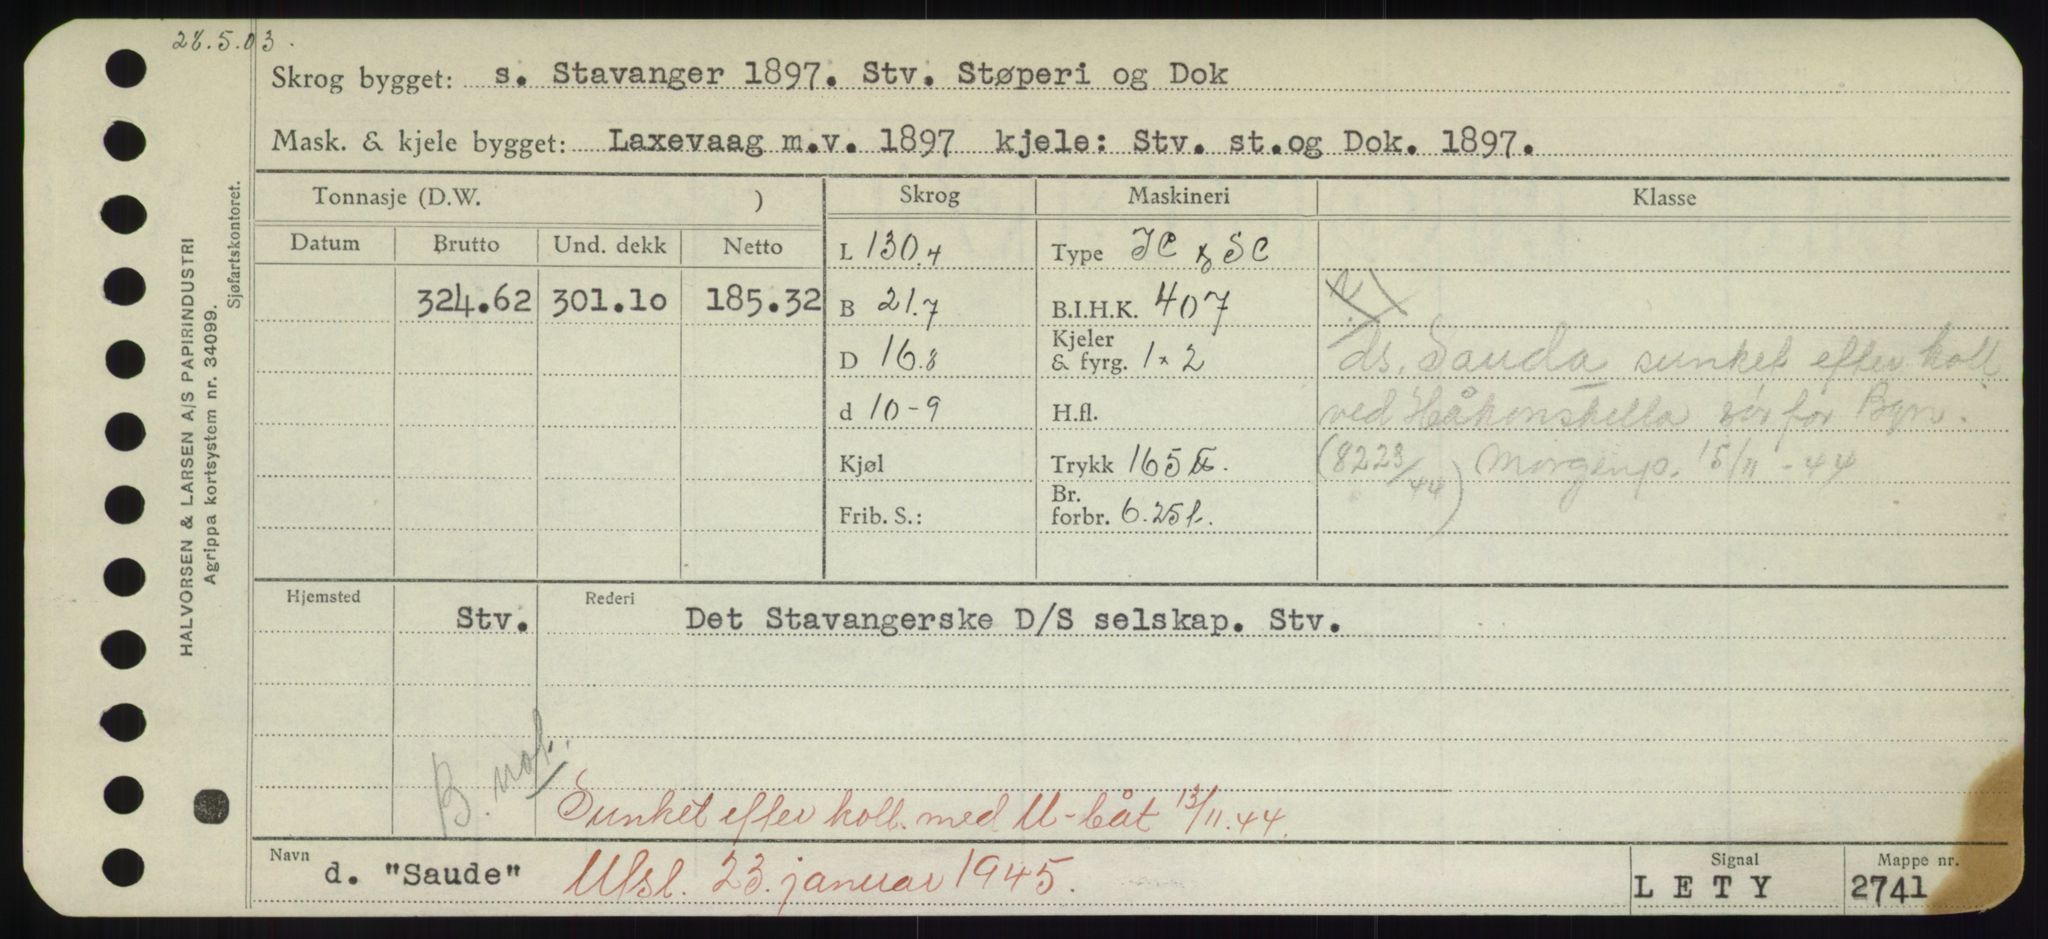 28.5.03.
Skrog bygget: s. Stavanger 1897. Stv. Støperi og Dok
Mask. & kjele bygget: Laxevaag m.v. 1897 kjele: Stv. st.og Dok. 1897.
Tonnasje (D.W. ) Skrog Maskineri Klasse
Datum Brutto Und. dekk Netto L 130.4 Type
324.62 301.10 185.32 B 21.7 B.I.H.K. 407
D 16.8 Kjeler & fyrg. 1 x 2 ds. Sauda sunket efter koll.
d 10-9 H.fl. ved Håkonshella sør for Bgn.
Kjøl Trykk 165 (8223/44) Morgenp. 15/11-44
Frib. S.: Br. forbr. 6.25
Hjemsted Stv. Rederi Det Stavangerske D/S selskap. Stv.
B.
Sunket efter koll. med U-båt 13/11.44.
Navn d. "Saude" Utsl. 23. januar 1945. Signal LETY Mappe nr. 2741
HALVORSEN & LARSEN A/S PAPIRINDUSTRI
Agrippa kortsystem nr. 34099.
Sjøfartskontoret.